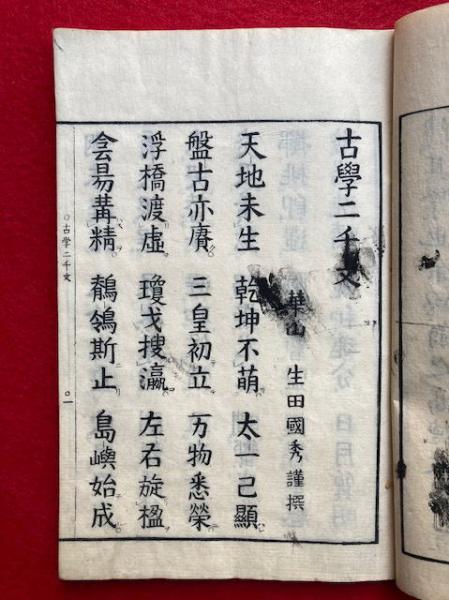 古學二千文
華山 生田國秀謹撰
天地未生 乾坤不萌 太一已顯
盤古亦賡 三皇初立 万物悉榮
浮橋渡虛 瓊戈搜瀛 左右旋楹
侌昜冓精 鶺鴒斯止 島嶼始成
古学二千文
〇一